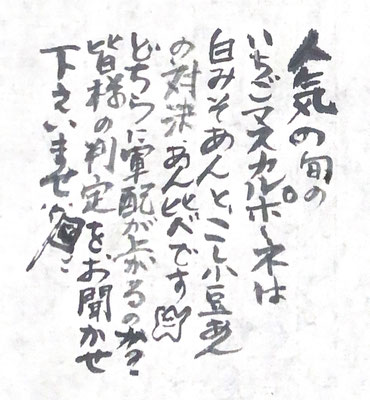 人気の旬の
いちごマスカルポーネは
白みそあんと、こし小豆あん
の対決、あん比べです
どちらに軍配が上がるのか?
皆様の判定を、お聞かせ
下さいませ